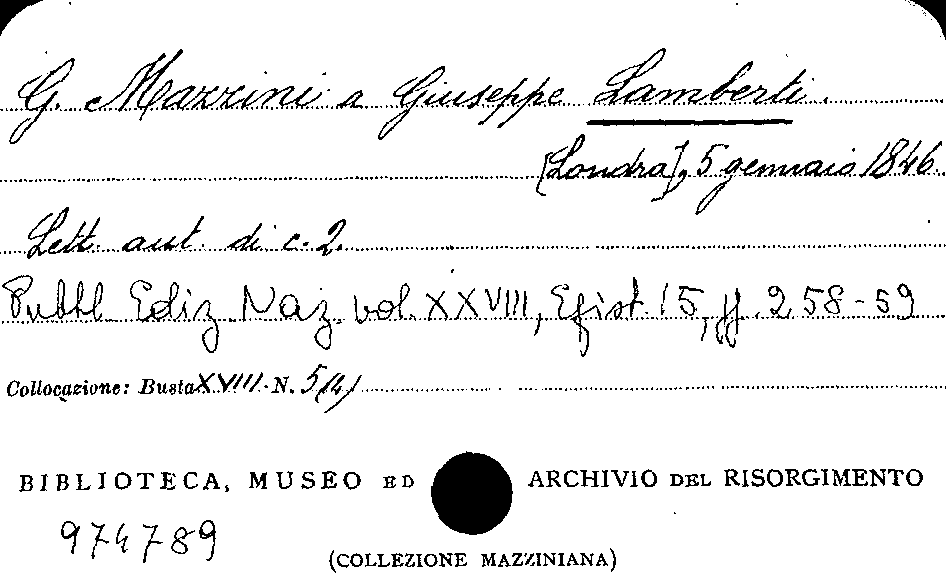 G. Mazzini a Giuseppe Lamberti.
[Londra], 5 gennaio 1846.
Lett. aut. di c. 2.
Pubbl. Ediz. Naz. vol. XXVIII, Epist. 15, pp. 258-59
Collocazione: Busta XVIII N. 5/(4)
BIBLIOTECA, MUSEO ED ARCHIVIO DEL RISORGIMENTO
974789
(COLLEZIONE MAZZINIANA)